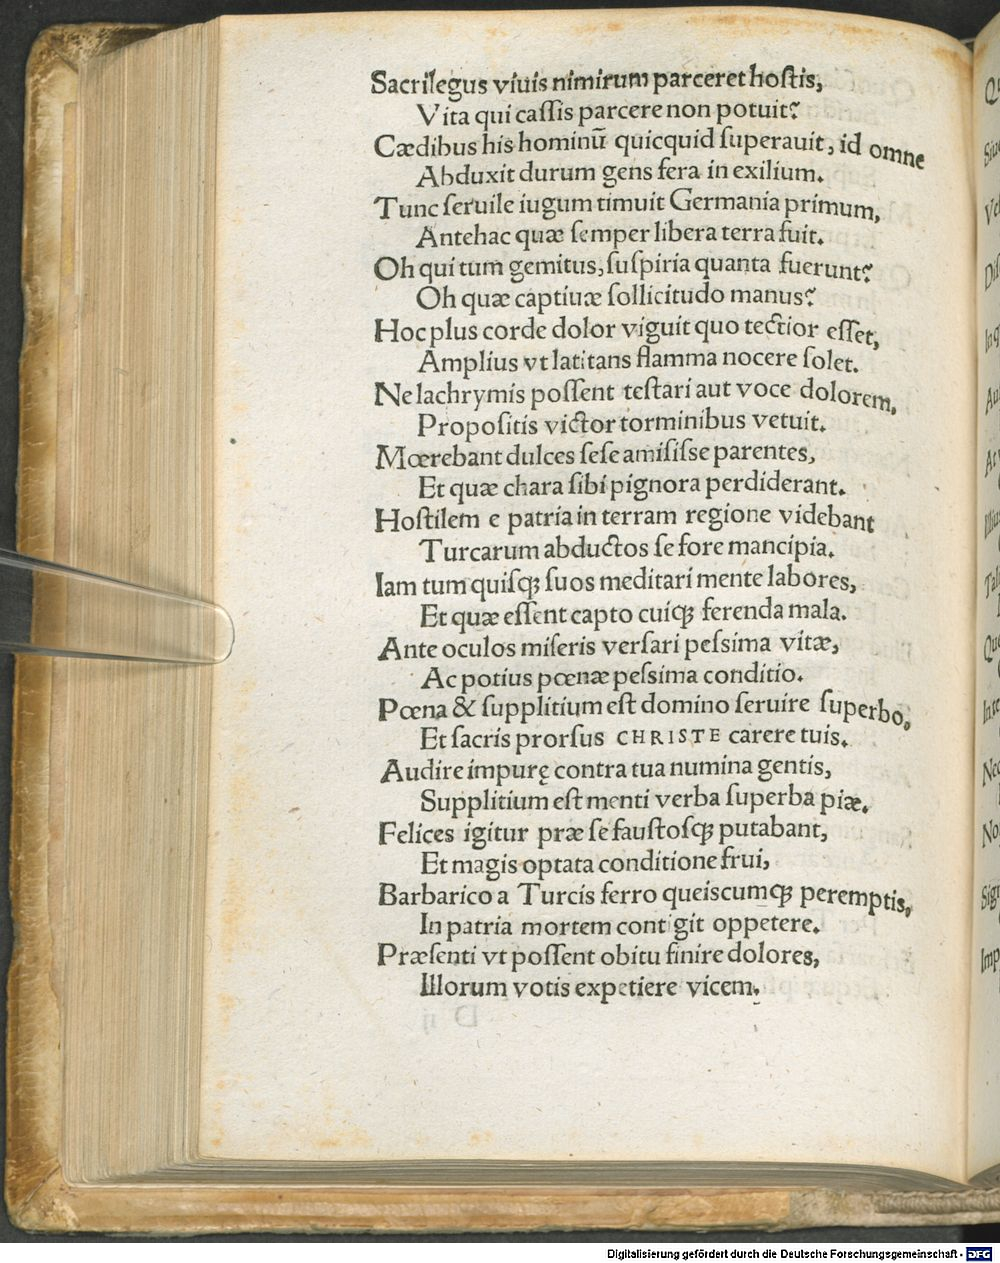 Sacrilegus viuis nimirum parceret hostis,
Vita qui cassis parcere non potuit?
Cædibus his hominū quicquid superauit, id omne
Abduxit durum gens fera in exilium.
Tunc seruile iugum timuit Germania primum,
Antehac quæ semper libera terra fuit.
Oh qui tum gemitus, suspiria quanta fuerunt?
Oh quæ captiuæ sollicitudo manus?
Hoc plus corde dolor viguit quo tectior esset,
Amplius vt latitans flamma nocere solet.
Ne lachrymis possent testari aut voce dolorem,
Propositis victor torminibus vetuit.
Mœrebant dulces sese amisisse parentes,
Et quæ chara sibi pignora perdiderant.
Hostilem e patria in terram regione videbant
Turcarum abductos se fore mancipia.
Iam tum quisqꝫ suos meditari mente labores,
Et quæ essent capto cuiqꝫ ferenda mala.
Ante oculos miseris versari pessima vitæ,
Ac potius pœnæ pessima conditio.
Pœna & supplitium est domino seruire superbo,
Et sacris prorsus CHRISTE carere tuis.
Audire impurę contra tua numina gentis,
Supplitium est menti verba superba piæ.
Felices igitur præ se faustosqꝫ putabant,
Et magis optata conditione frui,
Barbarico a Turcis ferro queiscumqꝫ peremptis,
In patria mortem contigit oppetere.
Præsenti vt possent obitu finire dolores,
Illorum votis expetiere vicem.
Digitalisierung gefördert durch die Deutsche Forschungsgemeinschaft - DFG